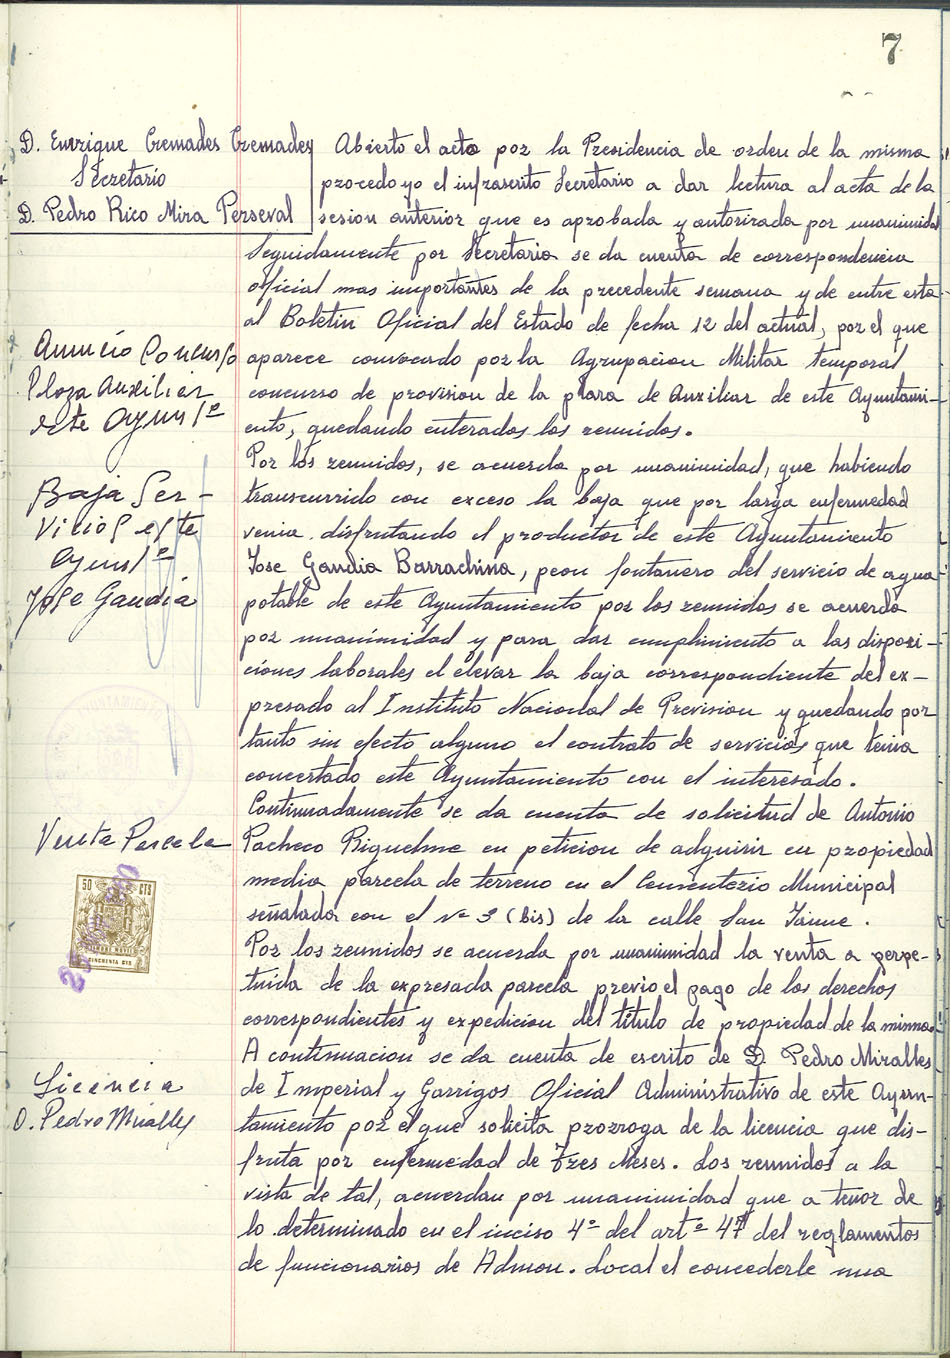 7
D. Enrique Cremades Cremades
Secretario
D. Pedro Rico Mira Perseval
Abierto el acto por la Presidencia de orden de la misma
procedo yo el infrascrito Secretario a dar lectura al acta de la
sesion anterior que es aprobada y autorizada por unanimidad
Seguidamente por Secretaria se da cuenta de correspondencia
oficial mas importantes de la precedente semana y de entre esta
al Boletin Oficial del Estado de fecha 12 del actual, por el que
Anuncio Concurso
Plaza Auxiliar
este Ayuntº
aparece convocado por la Agrupacion Militar temporal
concurso de provision de la plaza de Auxiliar de este Ayuntami-
ento, quedando enterados los reunidos.
Baja Ser-
vicios este
Ayuntº
Jose Gandia
Por los reunidos, se acuerda por unanimidad, que habiendo
transcurrido con exceso la baja que por larga enfermedad
venia disfrutando el productor de este Ayuntamiento
Jose Gandia Barrachina, peon fontanero del servicio de agua
potable de este Ayuntamiento por los reunidos se acuerda
por unanimidad y para dar cumplimiento a las disposi-
ciones laborales el elevar la baja correspondiente del ex-
presado al Instituto Nacional de Prevision y quedando por
tanto sin efecto alguno el contrato de servicios que tenia
concertado este Ayuntamiento con el interesado.
Venta Parcela
Continuadamente se da cuenta de solicitud de Antonio
Pacheco Riquelme en peticion de adquirir en propiedad
media parcela de terreno en el Cementerio Municipal
señalada con el nº 3 (bis) de la calle San Jaime.
50 CTS
CINCUENTA CTS
Por los reunidos se acuerda por unanimidad la venta a perpe-
tuida de la expresada parcela previo el pago de los derechos
correspondientes y expedicion del titulo de propiedad de la misma.
Licencia
D. Pedro Miralles
A continuacion se da cuenta de escrito de D. Pedro Miralles
de Imperial y Garrigos Oficial Administrativo de este Ayun-
tamiento por el que solicita prorroga de la licencia que dis-
fruta por enfermedad de Tres Meses. Los reunidos a la
vista de tal, acuerdan por unanimidad que a tenor de
lo determinado en el inciso 4º del artº 47 del reglamentos
de funcionarios de Admon. Local el concederle una